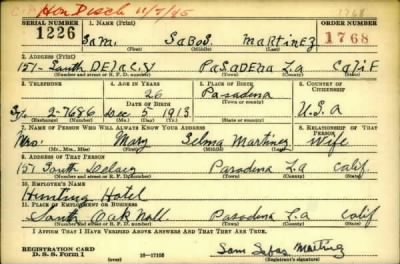 Hon Disch 11/5/45
SERIAL NUMBER 1. NAME (Print) ORDER NUMBER
1226 SAM. SABOS MARTINEZ 1768
(First) (Middle) (Last)
2. ADDRESS (Print)
151-South DELACY PASADENA LA CALIF
(Number and street or R. F. D. number) (Town) (County) (State)
3. TELEPHONE 4. AGE IN YEARS 5. PLACE OF BIRTH 6. COUNTRY OF CITIZENSHIP
26 Pasadena
DATE OF BIRTH (Town or county)
Sy. 2-7686 Dec 5 1913 Calif U.S.A
(Exchange) (Number) (Mo.) (Day) (Yr.) (State or country)
7. NAME OF PERSON WHO WILL ALWAYS KNOW YOUR ADDRESS 8. RELATIONSHIP OF THAT PERSON
Mrs. Mary Selma Martinez Wife
(Mr., Mrs., Miss) (First) (Middle) (Last)
9. ADDRESS OF THAT PERSON
151 South Delacy Pasadena L.a Calif.
(Number and street or R. F. D. number) (Town) (County) (State)
10. EMPLOYER'S NAME
Hotel
11. PLACE OF EMPLOYMENT OR BUSINESS
South Oak Pasadena L.a Calif
(Number and street or R. F. D. number) (Town) (County) (State)
I AFFIRM THAT I HAVE VERIFIED ABOVE ANSWERS AND THAT THEY ARE TRUE.
REGISTRATION CARD
D. S. S. Form 1 16-17105 Sam Sabos